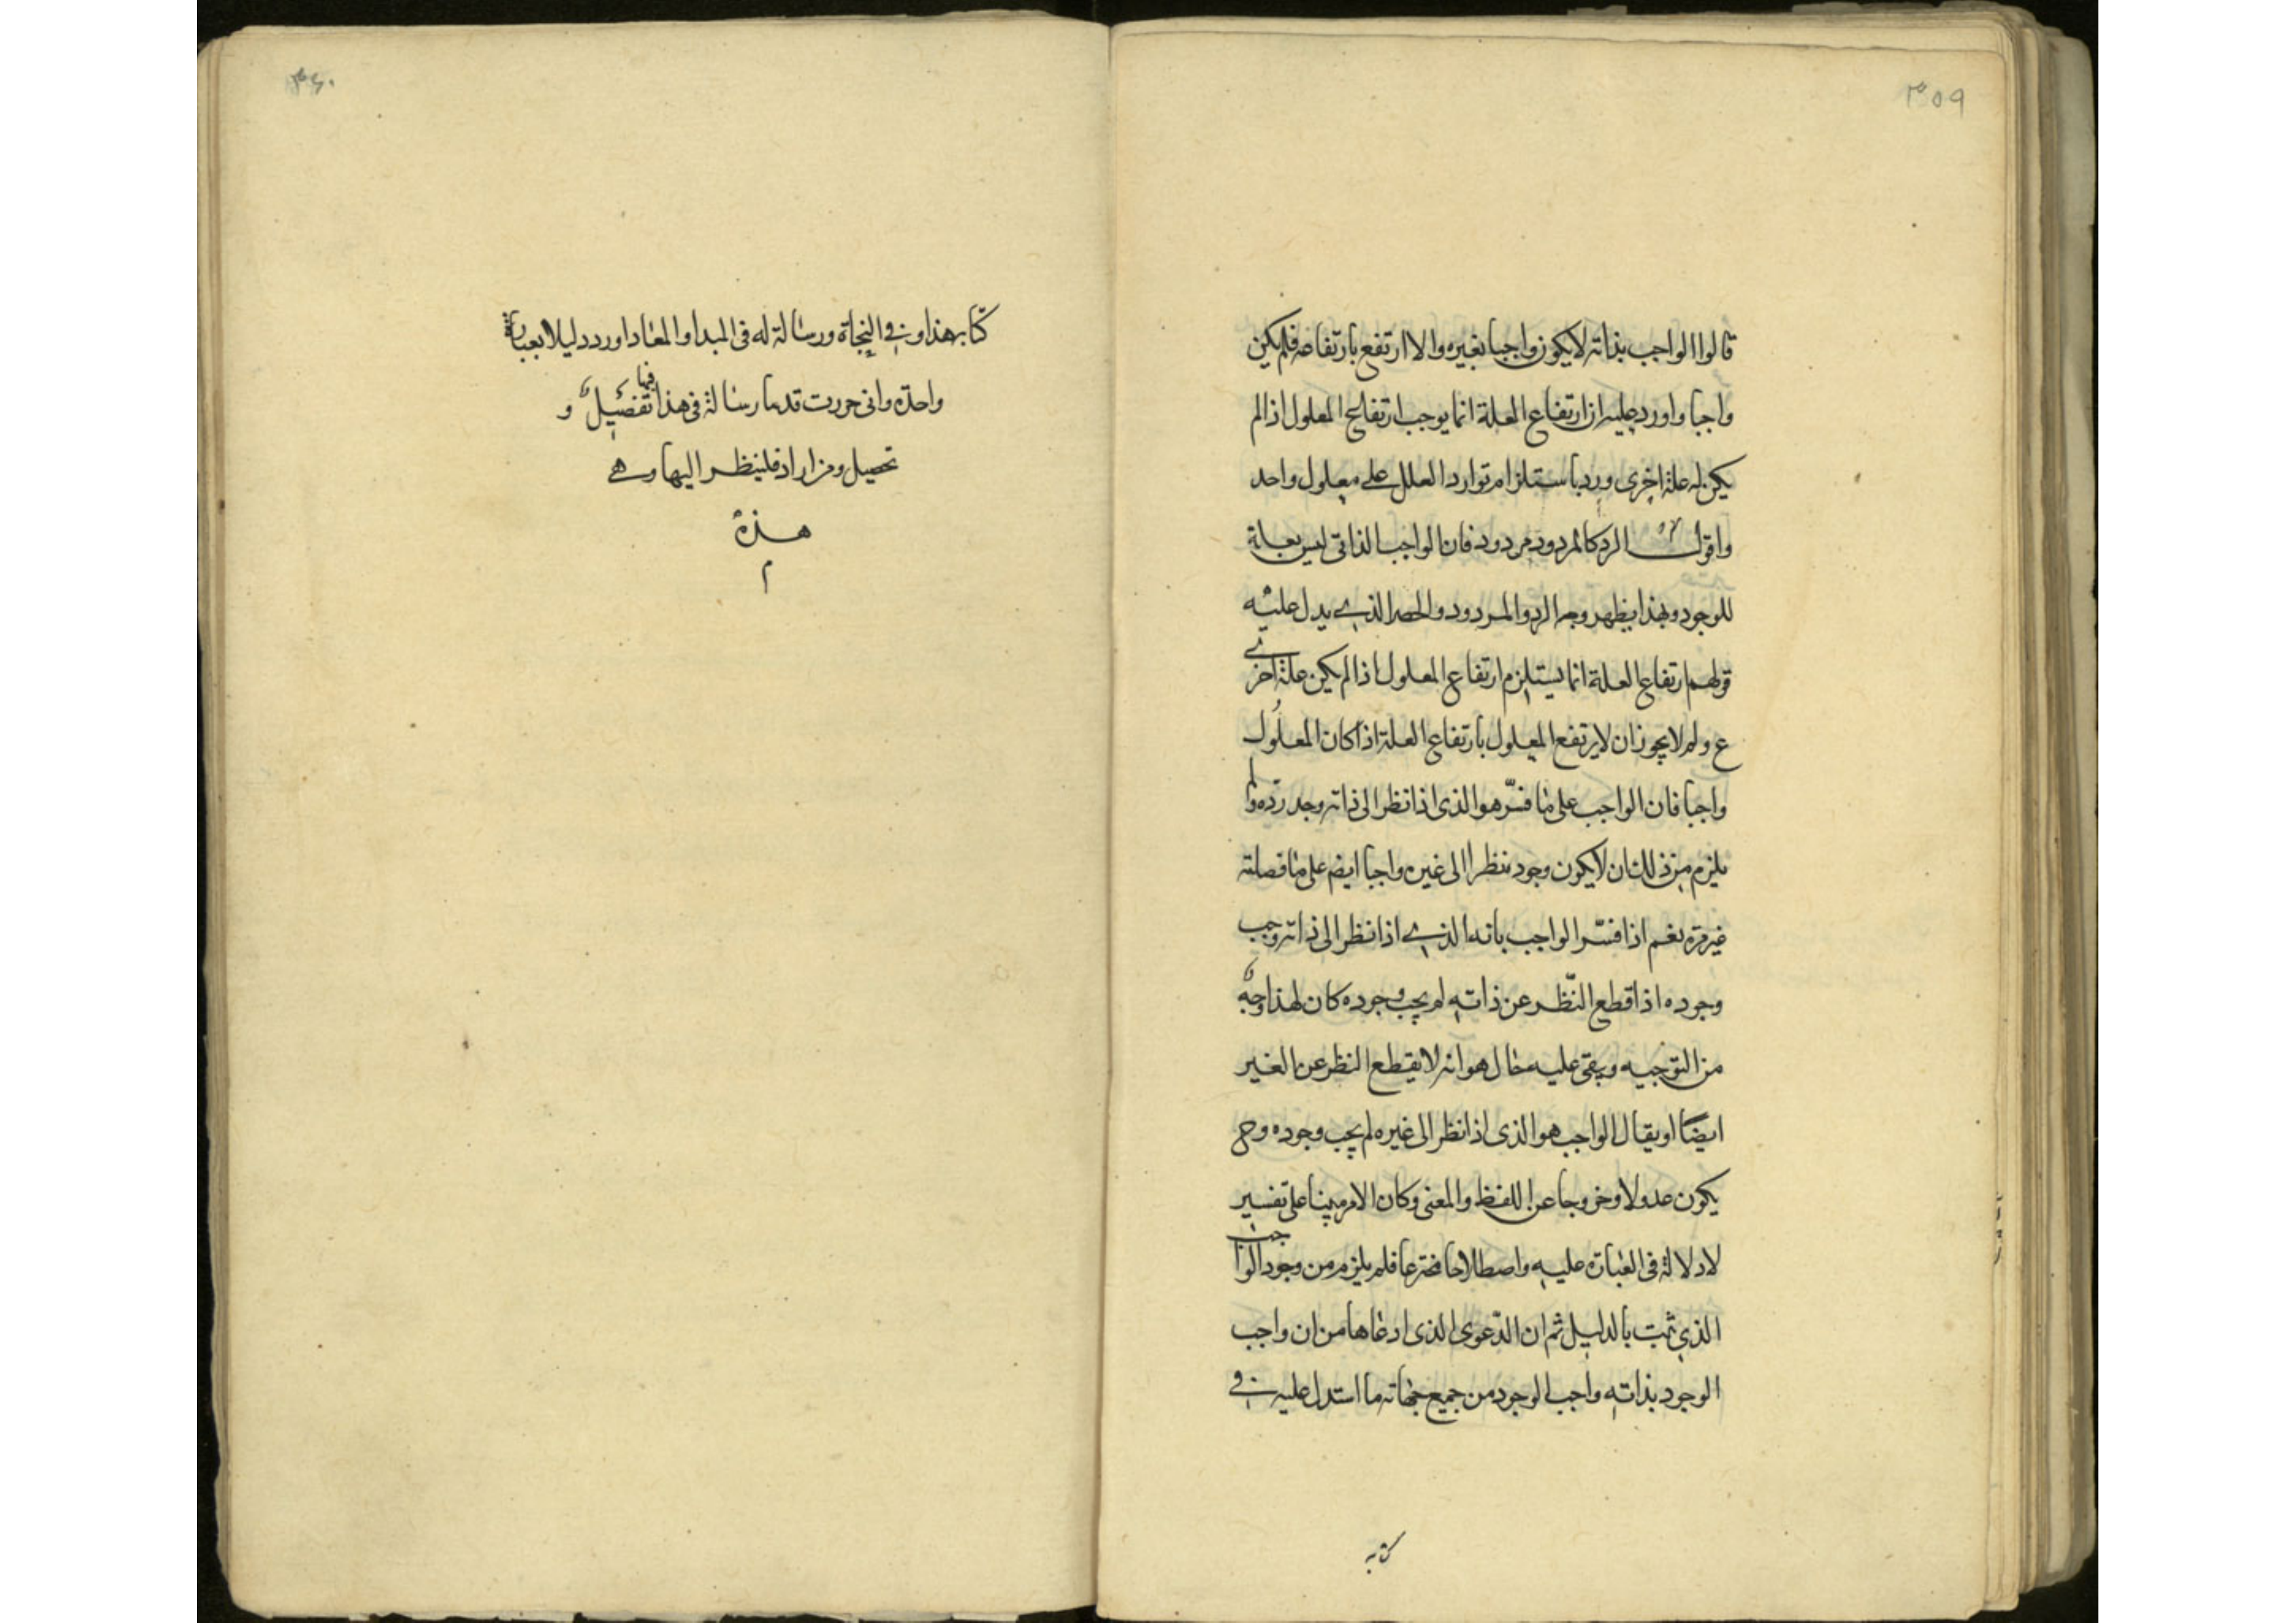 ٣٥٩
قالوا الواجب بذاته لا يكون واجبا بغيره والا ارتفع بارتفاعه فلم يكن
واجبا واورد عليه ان ارتفاع العلة انما يوجب ارتفاع المعلول اذا لم
يكن له علة اخرى ورد باستلزام توارد العلل على معلول واحد
واقول الرد كالمردود مردود فان الواجب الذاتى ليس بعلة
للوجود وبهذا يظهر وجه الرد والمردود والحصر الذي يدل عليه
قولهم ارتفاع العلة انما يستلزم ارتفاع المعلول اذا لم يكن علة اخرى
ع ولم لا يجوز ان لا يرتفع المعلول بارتفاع العلة اذا كان المعلول
واجبا فان الواجب على ما فسّر هو الذى اذا نظر الى ذاته وجد
يلزم من ذلك ان لا يكون وجود نظرا الى غيره واجبا ايضم على ما فصلته
غير مرة نعم اذا فسّر الواجب بانه الذي اذا نظر الى ذاته وجب
وجوده اذا قطع النّظر عن ذاته لم يجب وجوده كان لهذا وجهٌ
من التوجيه ويبقى عليه هو انه لا يقطع النظر عن الغير
ايضًا او يقال الواجب هو الذى اذا نظر الى غيره لم يجب وجوده وح
يكون عدولا وخروجا عن اللفظ والمعنى وكان الامر مبينا على تفسير
لا دلالة فى العبارة عليه واصطلاحا مخترعا فلم يلزم من وجود الواجب
الذي ثبت بالدليل ثم ان الدّعوى الذى ادعاها من ان واجب
الوجود بذاته واجب الوجود من جميع جهاته ما استدل عليه في
كتابه
٣٦٠
كتابه هذا وفي النجاة ورسالة له فى المبدا والمعاد اورد دليلا بعبارة
واحدة وانى حررت قدما رسالة فى هذا فيها تفصيلٌ و
تحصيل ومن اراد فلينظر اليها وهي
هذه
م